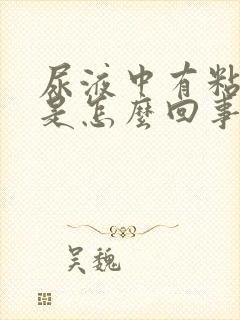 尿液中有粘
是怎麼回事
吴魏